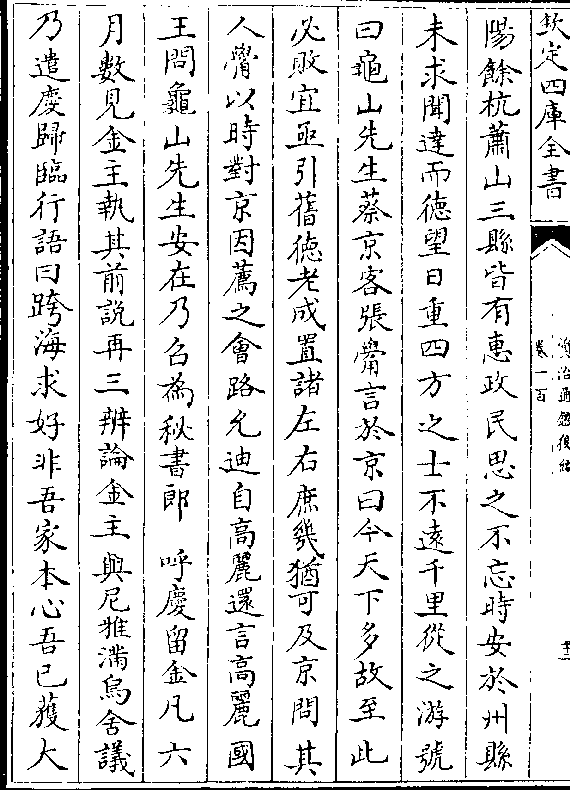 欽定四庫全書
資治通鑑後編
卷一百
陽餘杭蕭山三縣皆有惠政民思之不忘時安於州縣
未求聞達而德望日重四方之士不遠千里從之游號
曰龜山先生蔡京客張觷言於京曰今天下多故至此
必敗宜亟引舊德老成置諸左右庶幾猶可及京問其
人觷以時對京因薦之會路允迪自高麗還言高麗國
王問龜山先生安在乃召為秘書郎 呼慶留金凡六
月數見金主執其前說再三辨論金主與尼雅滿烏舍議
乃遣慶歸臨行語曰跨海求好非吾家本心吾已獲大